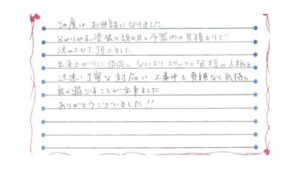 この度は お世話になりました
分かりやすい塗装の説明と予算内の見積もりで
決めさせて頂きました
出来上がりに満足しなによりスタッフの皆様の人柄と
迅速、丁寧な対応に 工事中も負担なく気持ち
良く過ごすことが出来ました
ありがとうございました!!